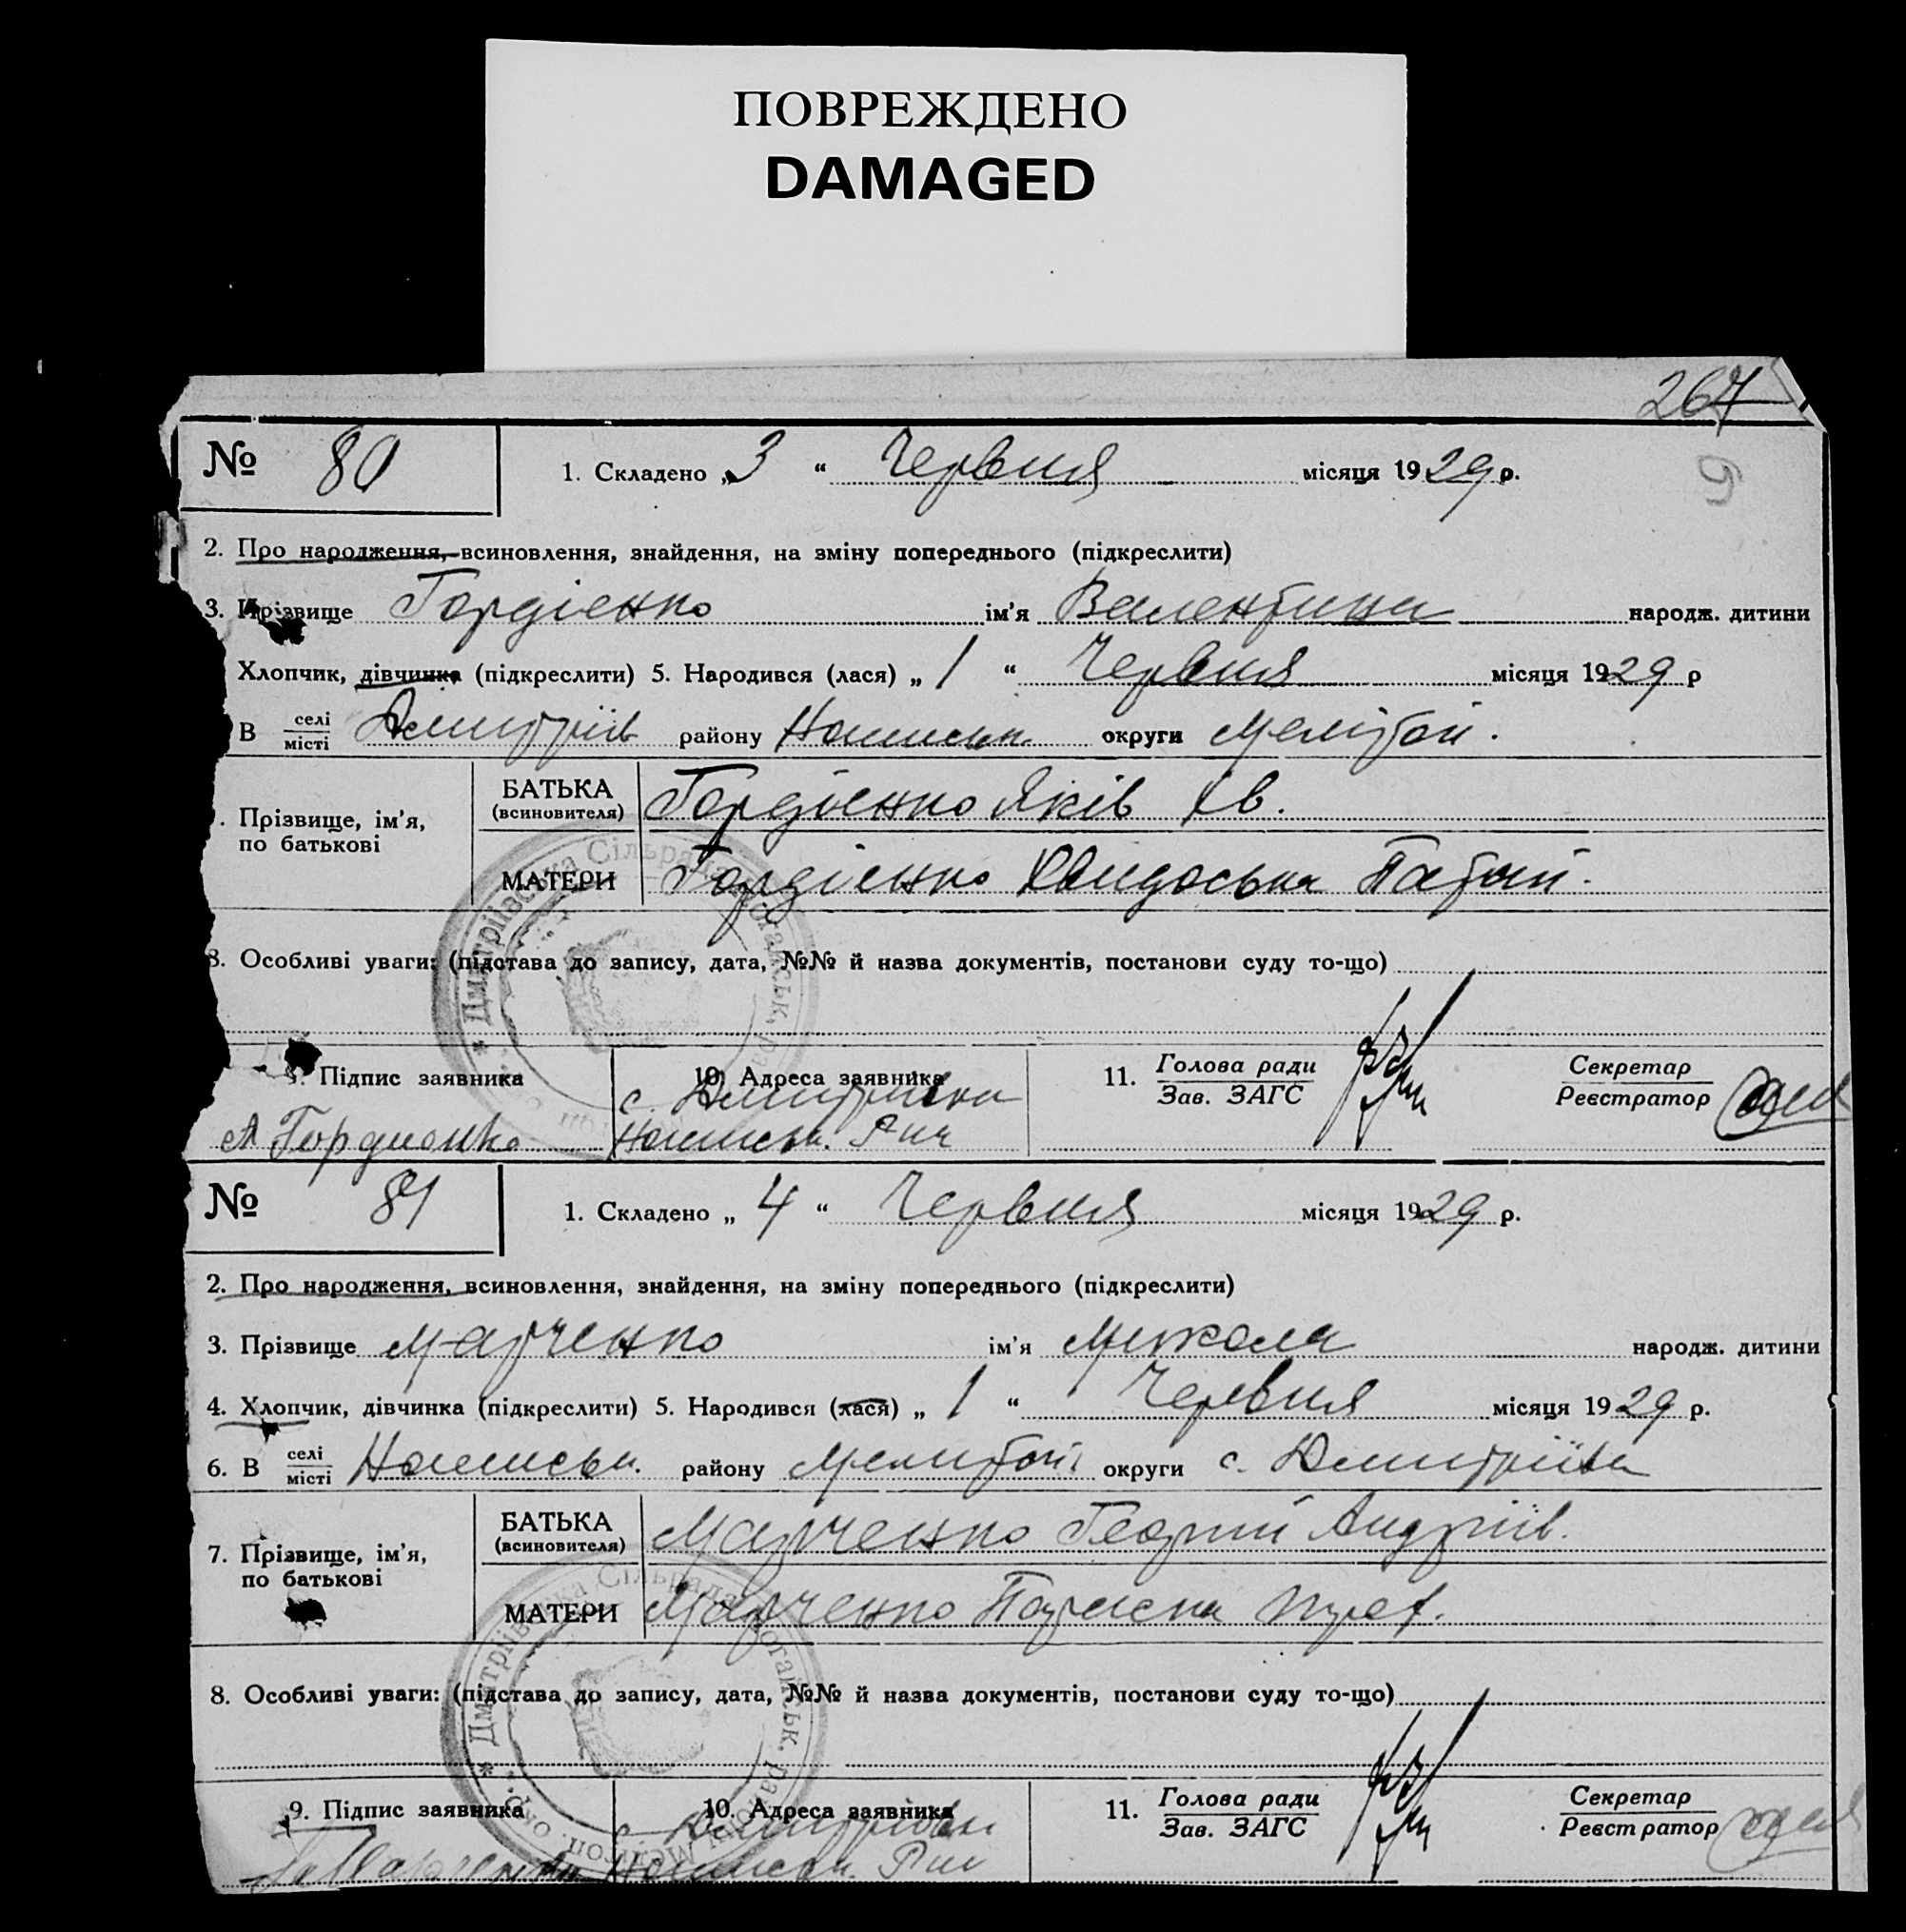 ПОВРЕЖДЕНО
DAMAGED
267
№ 80 1. Складено „3 “ Червня місяця 1929 р.
2. Про народження, всиновлення, знайдення, на зміну попереднього (підкреслити)
3. Прізвище Гордієнко ім’я Валентина народж. дитини
Хлопчик, дівчинка (підкреслити) 5. Народився (лася) „ 1 “ Червня місяця 1929 р
В селі
місті Дмитріїв району округи Меліт
. Прізвище, ім’я,
по батькові
БАТЬКА
(всиновителя) Гордієнко Яків Ів.
МАТЕРИ Гордієнко
8. Особливі уваги: (підстава до запису, дата, №№ й назва документів, постанови суду то-що)
9. Підпис заявника
Гордиенко
10. Адреса заявника
с. Дмитрівка
11. Голова ради
Зав. ЗАГС
Секретар
Реєстратор
* Дмитріївська Сільрада
№ 81 1. Складено „ 4 “ Червня місяця 1929 р.
2. Про народження, всиновлення, знайдення, на зміну попереднього (підкреслити)
3. Прізвище Марченко ім’я Микола народж. дитини
4. Хлопчик, дівчинка (підкреслити) 5. Народився (лася) „ 1 “ Червня місяця 1929 р.
6. В селі
місті району округи с. Дмитріївка
7. Прізвище, ім’я,
по батькові
БАТЬКА
(всиновителя) Марченко Георгий Андріїв.
МАТЕРИ Марченко
8. Особливі уваги: (підстава до запису, дата, №№ й назва документів, постанови суду то-що)
9. Підпис заявника
Марченко
10. Адреса заявника
с. Дмитрівка
11. Голова ради
Зав. ЗАГС
Секретар
Реєстратор
* Дмитріївська Сільрада Ногайськ. району Мелітоп. окр.